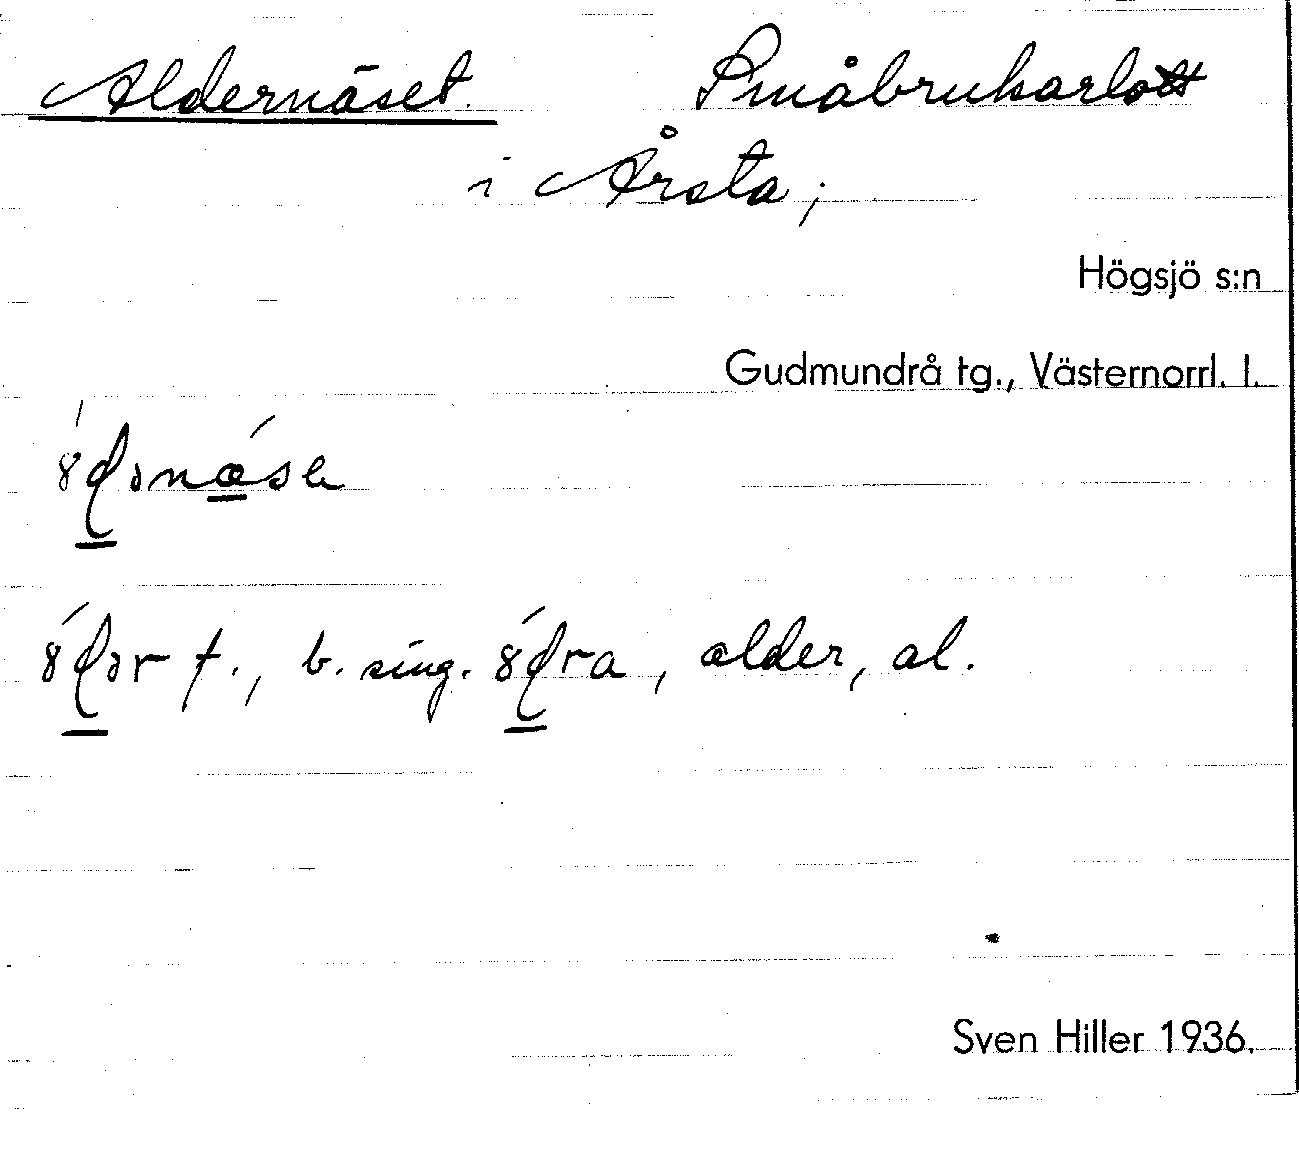 Aldernäset. Småbrukarlott
i Årsta;
Högsjö s:n
Gudmundrå tg., Västernorrl. l.
f., b. sing. , alder, al.
Sven Hiller 1936.